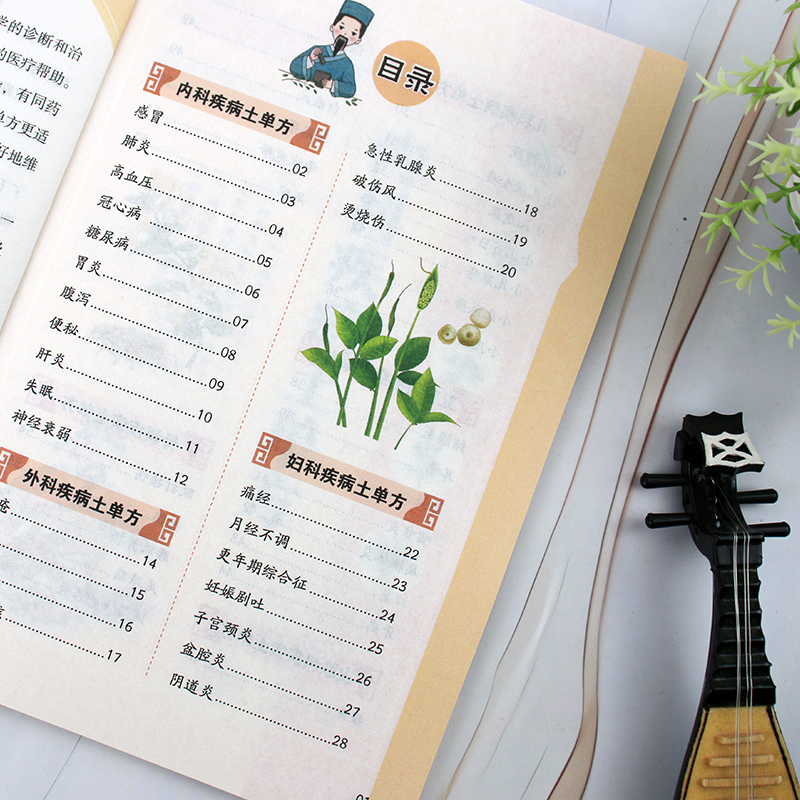 学的诊断和治
的医疗帮助。
有同药
单方更适
好地维
目录
内科疾病土单方
感冒 02
肺炎 03
高血压 04
冠心病 05
糖尿病 06
胃炎 07
腹泻 08
便秘 09
肝炎 10
失眠 11
神经衰弱 12
外科疾病土单方
14
15
16
17
急性乳腺炎 18
破伤风 19
烫烧伤 20
妇科疾病土单方
痛经 22
月经不调 23
更年期综合征 24
妊娠剧吐 25
子宫颈炎 26
盆腔炎 27
阴道炎 28